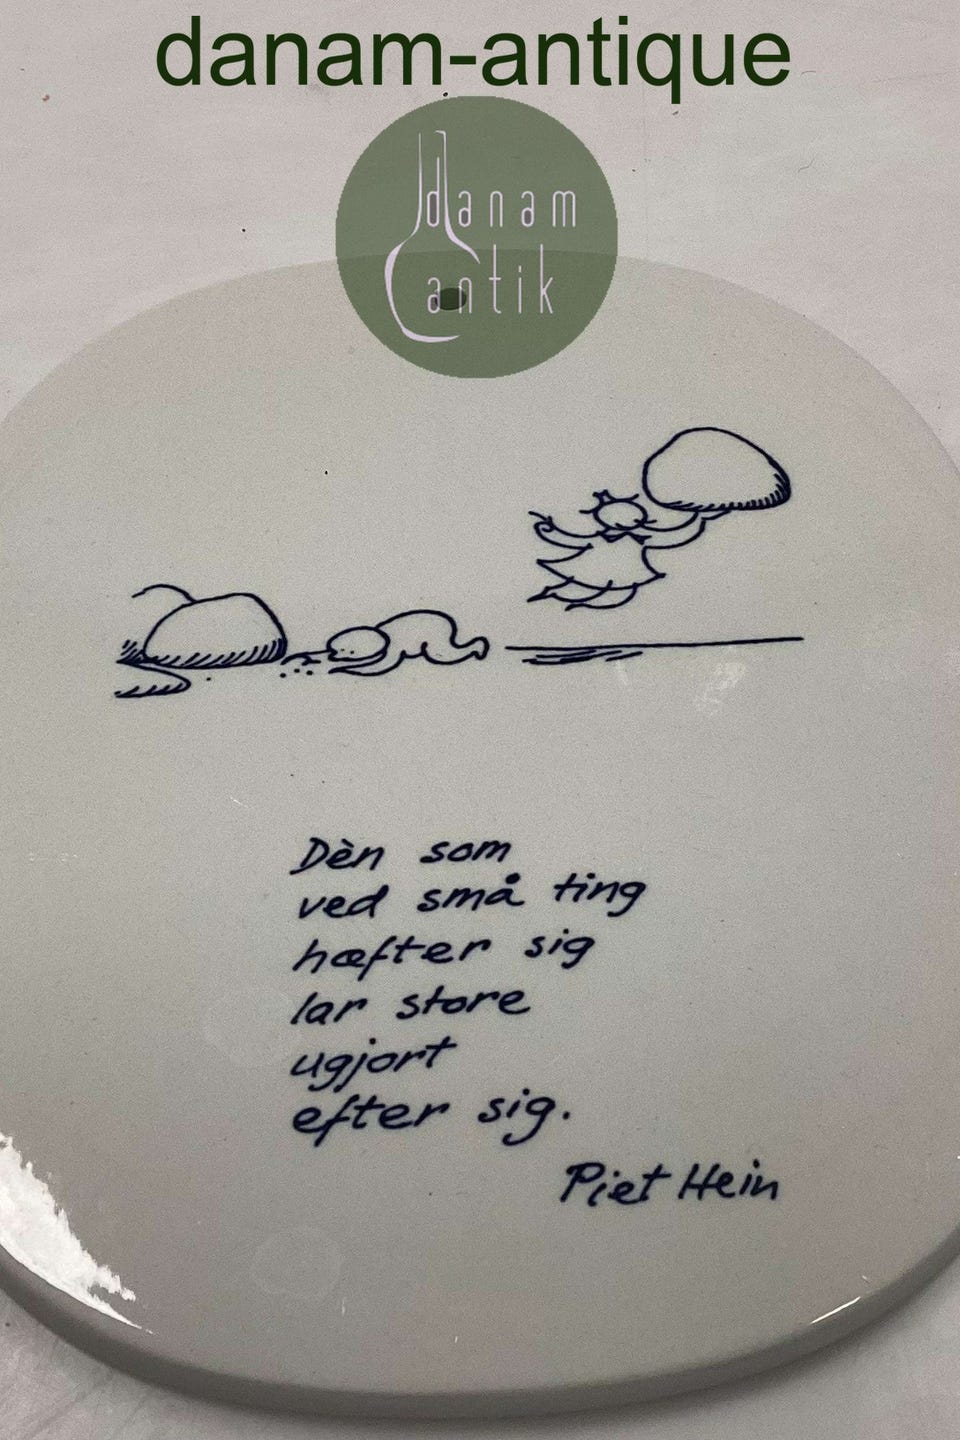 danam-antique
danam
antik
Dèn som
ved små ting
hæfter sig
lar store
ugjort
efter sig.
Piet Hein